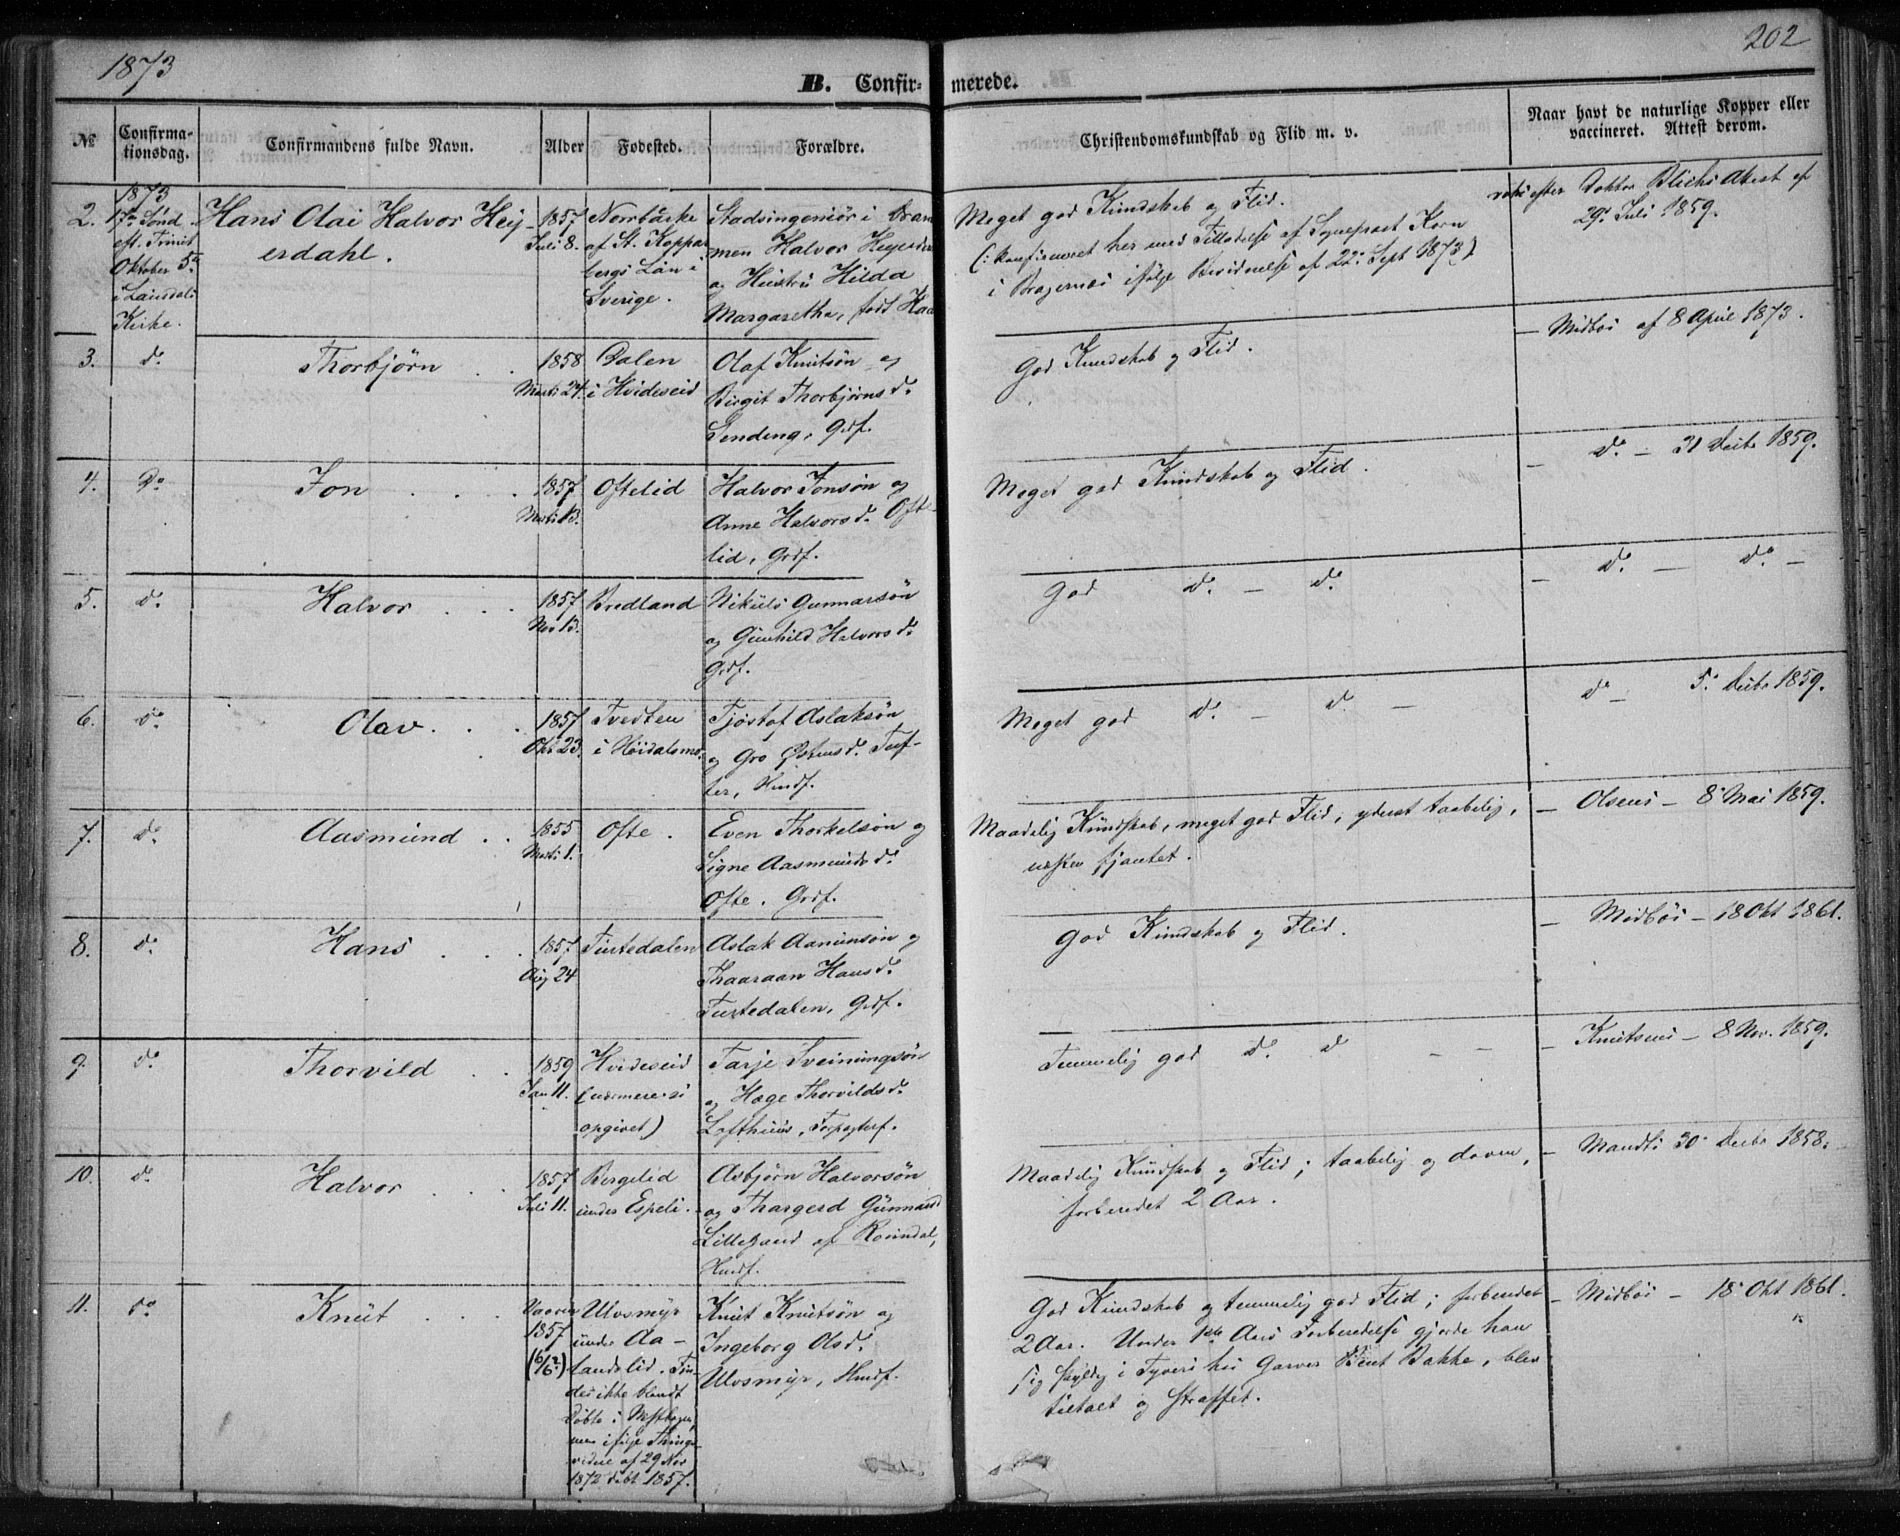 1873
202
B. Confir- merede.
№
Confirma-
tionsdag.
Confirmandens fulde Navn.
Alder
Fødested.
Forældre.
Christendomskundskab og Flid m. v.
Naar havt de naturlige Kopper eller
vaccineret. Attest derom.
2.
1873
17de Sønd
eft. Trinit
Oktober 5te
i Laurdals
Kirke.
Hans Olai Halvor Hey-
erdahl.
1857
Juli 8.
Norrbärke
af St. Koppar
bergs Län i
Sverige.
Stadsingeniör i Dram
men Halvor Heyerda
og Hustru Hilda
Margaretha, født Haa
Meget god Kundskab og Flid.
(: konfirmeret her med Tilladelse af Sognepræst Korn
i Bragernæs ifølge Bevidnelse af 22. Sept 1873)
vaks efter Doktor Blichs Attest af
29. Juli 1859.
3.
do
Thorbjørn . .
1858
Marts 24.
Dalen
i Hvideseid
Olaf Knutsøn og
Birgit Thorbjørnsd.
Sendeng, Grdf.
God Kundskab og Flid.
— Midbøs af 8 April 1873.
4.
Do
Jon . . .
1857
Marts 13.
Oftelid
Halvor Jonsøn og
Anne Halvorsd. Ofte-
lid, Grdf.
Meget god Kundskab og Flid.
— do — 31 Decbr 1859.
5.
do
Halvor . . .
1857
Nov 13.
Bredland
Nikuls Gunnarsøn
og Gunhild Halvorsd.
Grdf.
God do — do
— do — do —
6.
do
Olav. . .
1857
Okt 23.
Tvedten
i Høidalsmo.
Tjøstof Aslaksøn
og Gro Østensd. Tuf-
ter, Husf.
Meget god do — do —
do — 5. Decbr 1859.
7.
do
Aasmund . .
1855
Marts 1.
Ofte.
Even Thorkelsøn og
Signe Aasmundsd.
Ofte. Grdf.
Maadelig Kundskab, meget god Flid, yderst taabelig,
næsten fjantet.
— Olsens — 8 Mai 1859.
8.
do
Hans . . .
1857
Aug 24
Tustedalen
Aslak Aanunsøn og
Thaaraan Hansd.
Tustedalen, Grdf.
God Kundskab og Flid.
— Midbøs — 18 Okt 1861.
9.
do
Thorvild . .
1859
Jan 11.
Hvideseid
(nærmere ei
opgivet)
Tarje Sveinungsøn
og Hæge Thorvildsd.
Lofthuus, Forpagterf.
Temmelig god do do — —
— Knutsens — 8 Nov. 1859.
10.
do
Halvor . . .
1857
Juli 11.
Bergelid
under Espeli.
Asbjørn Halvorsøn
og Thargerd Gunnarsd
Lillesand af
Husf.
Maadelig Kundskab og Flid; taabelig og doven,
forberedet 2 Aar.
— Mandts 30. Decbr 1858.
11.
do
Knut . . .
Vaaren
1857
(6/6?)
Ulvsmyr
under Aa-
landslid. Fin-
des ikke blandt
døbte i
men ifølge Things-
vidne af 29 Nov
1872 døbt 1857.
Knut Knutsøn og
Ingeborg Olsd.
Ulvsmyr, Husf.
God Kundskab og temmelig god Flid; forberedet
2 Aar. Under 1ste Aars Forberedelse gjorde han
sig skyldig i Tyveri hos Garver Bent Bakke, blev
tiltalt og straffet.
— Midbøs — 18 Okt 1861.